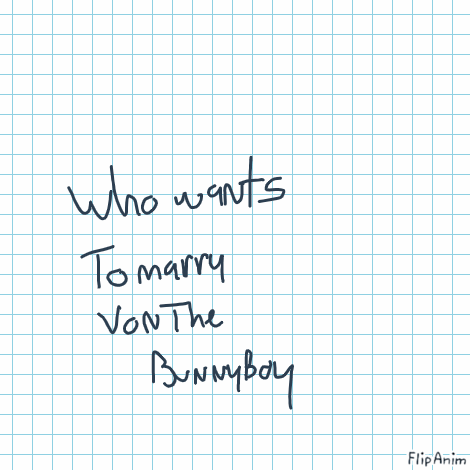 Who wants
To marry
Von The
BunnyBoy
FlipAnim